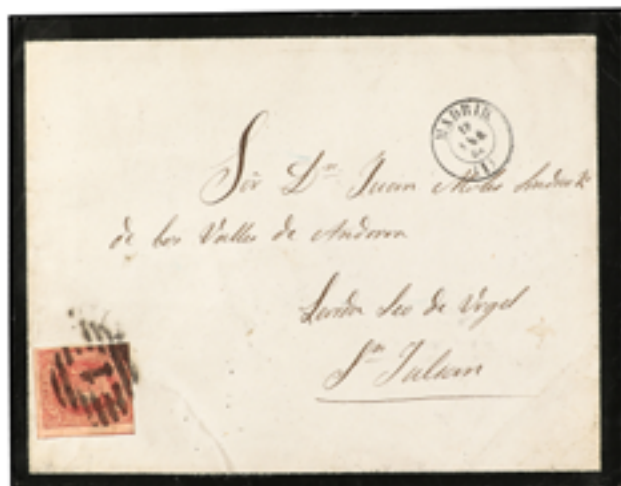 MADRID
Sor Dn Juan Moles Sindico
de los Valles de Andorra
Lerida Seo de Urgel
Sn Julian
1